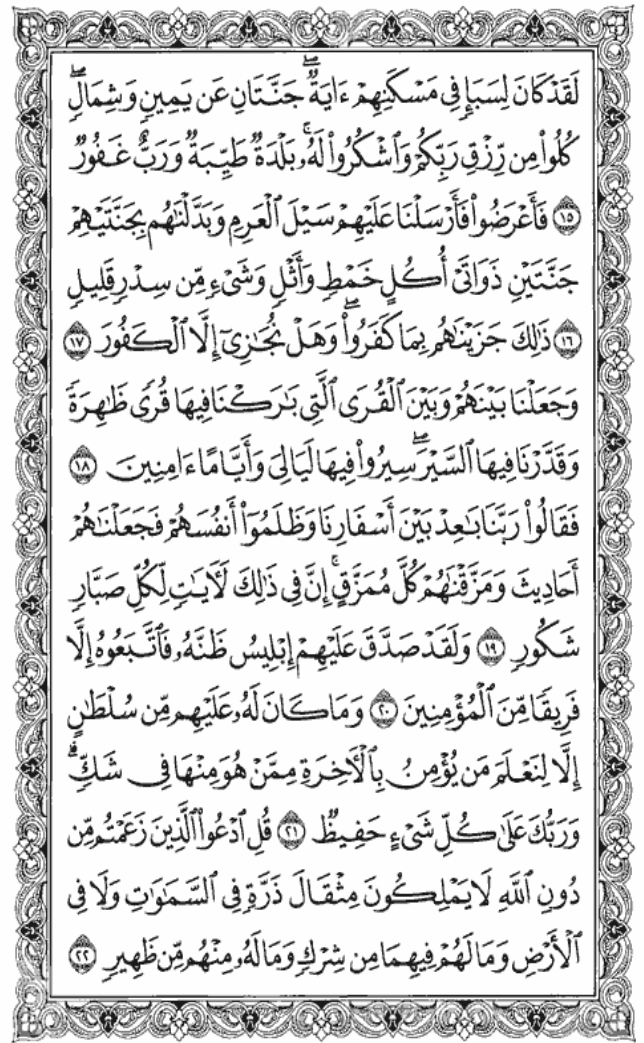 لَقَدْ كَانَ لِسَبَإٍ فِى مَسْكَنِهِمْ ءَايَةٌ ۖ جَنَّتَانِ عَن يَمِينٍ وَشِمَالٍ ۖ
كُلُوا۟ مِن رِّزْقِ رَبِّكُمْ وَٱشْكُرُوا۟ لَهُۥ ۚ بَلْدَةٌ طَيِّبَةٌ وَرَبٌّ غَفُورٌ
١٥ فَأَعْرَضُوا۟ فَأَرْسَلْنَا عَلَيْهِمْ سَيْلَ ٱلْعَرِمِ وَبَدَّلْنَٰهُم بِجَنَّتَيْهِمْ
جَنَّتَيْنِ ذَوَاتَىْ أُكُلٍ خَمْطٍ وَأَثْلٍ وَشَىْءٍ مِّن سِدْرٍ قَلِيلٍ
١٦ ذَٰلِكَ جَزَيْنَٰهُم بِمَا كَفَرُوا۟ ۖ وَهَلْ نُجَٰزِىٓ إِلَّا ٱلْكَفُورَ ١٧
وَجَعَلْنَا بَيْنَهُمْ وَبَيْنَ ٱلْقُرَى ٱلَّتِى بَٰرَكْنَا فِيهَا قُرًى ظَٰهِرَةً
وَقَدَّرْنَا فِيهَا ٱلسَّيْرَ ۖ سِيرُوا۟ فِيهَا لَيَالِىَ وَأَيَّامًا ءَامِنِينَ ١٨
فَقَالُوا۟ رَبَّنَا بَٰعِدْ بَيْنَ أَسْفَارِنَا وَظَلَمُوٓا۟ أَنفُسَهُمْ فَجَعَلْنَٰهُمْ
أَحَادِيثَ وَمَزَّقْنَٰهُمْ كُلَّ مُمَزَّقٍ ۚ إِنَّ فِى ذَٰلِكَ لَءَايَٰتٍ لِّكُلِّ صَبَّارٍ
شَكُورٍ ١٩ وَلَقَدْ صَدَّقَ عَلَيْهِمْ إِبْلِيسُ ظَنَّهُۥ فَٱتَّبَعُوهُ إِلَّا
فَرِيقًا مِّنَ ٱلْمُؤْمِنِينَ ٢٠ وَمَا كَانَ لَهُۥ عَلَيْهِم مِّن سُلْطَٰنٍ
إِلَّا لِنَعْلَمَ مَن يُؤْمِنُ بِٱلْءَاخِرَةِ مِمَّنْ هُوَ مِنْهَا فِى شَكٍّ ۗ
وَرَبُّكَ عَلَىٰ كُلِّ شَىْءٍ حَفِيظٌ ٢١ قُلِ ٱدْعُوا۟ ٱلَّذِينَ زَعَمْتُم مِّن
دُونِ ٱللَّهِ لَا يَمْلِكُونَ مِثْقَالَ ذَرَّةٍ فِى ٱلسَّمَٰوَٰتِ وَلَا فِى
ٱلْأَرْضِ وَمَا لَهُمْ فِيهِمَا مِن شِرْكٍ وَمَا لَهُۥ مِنْهُم مِّن ظَهِيرٍ ٢٢